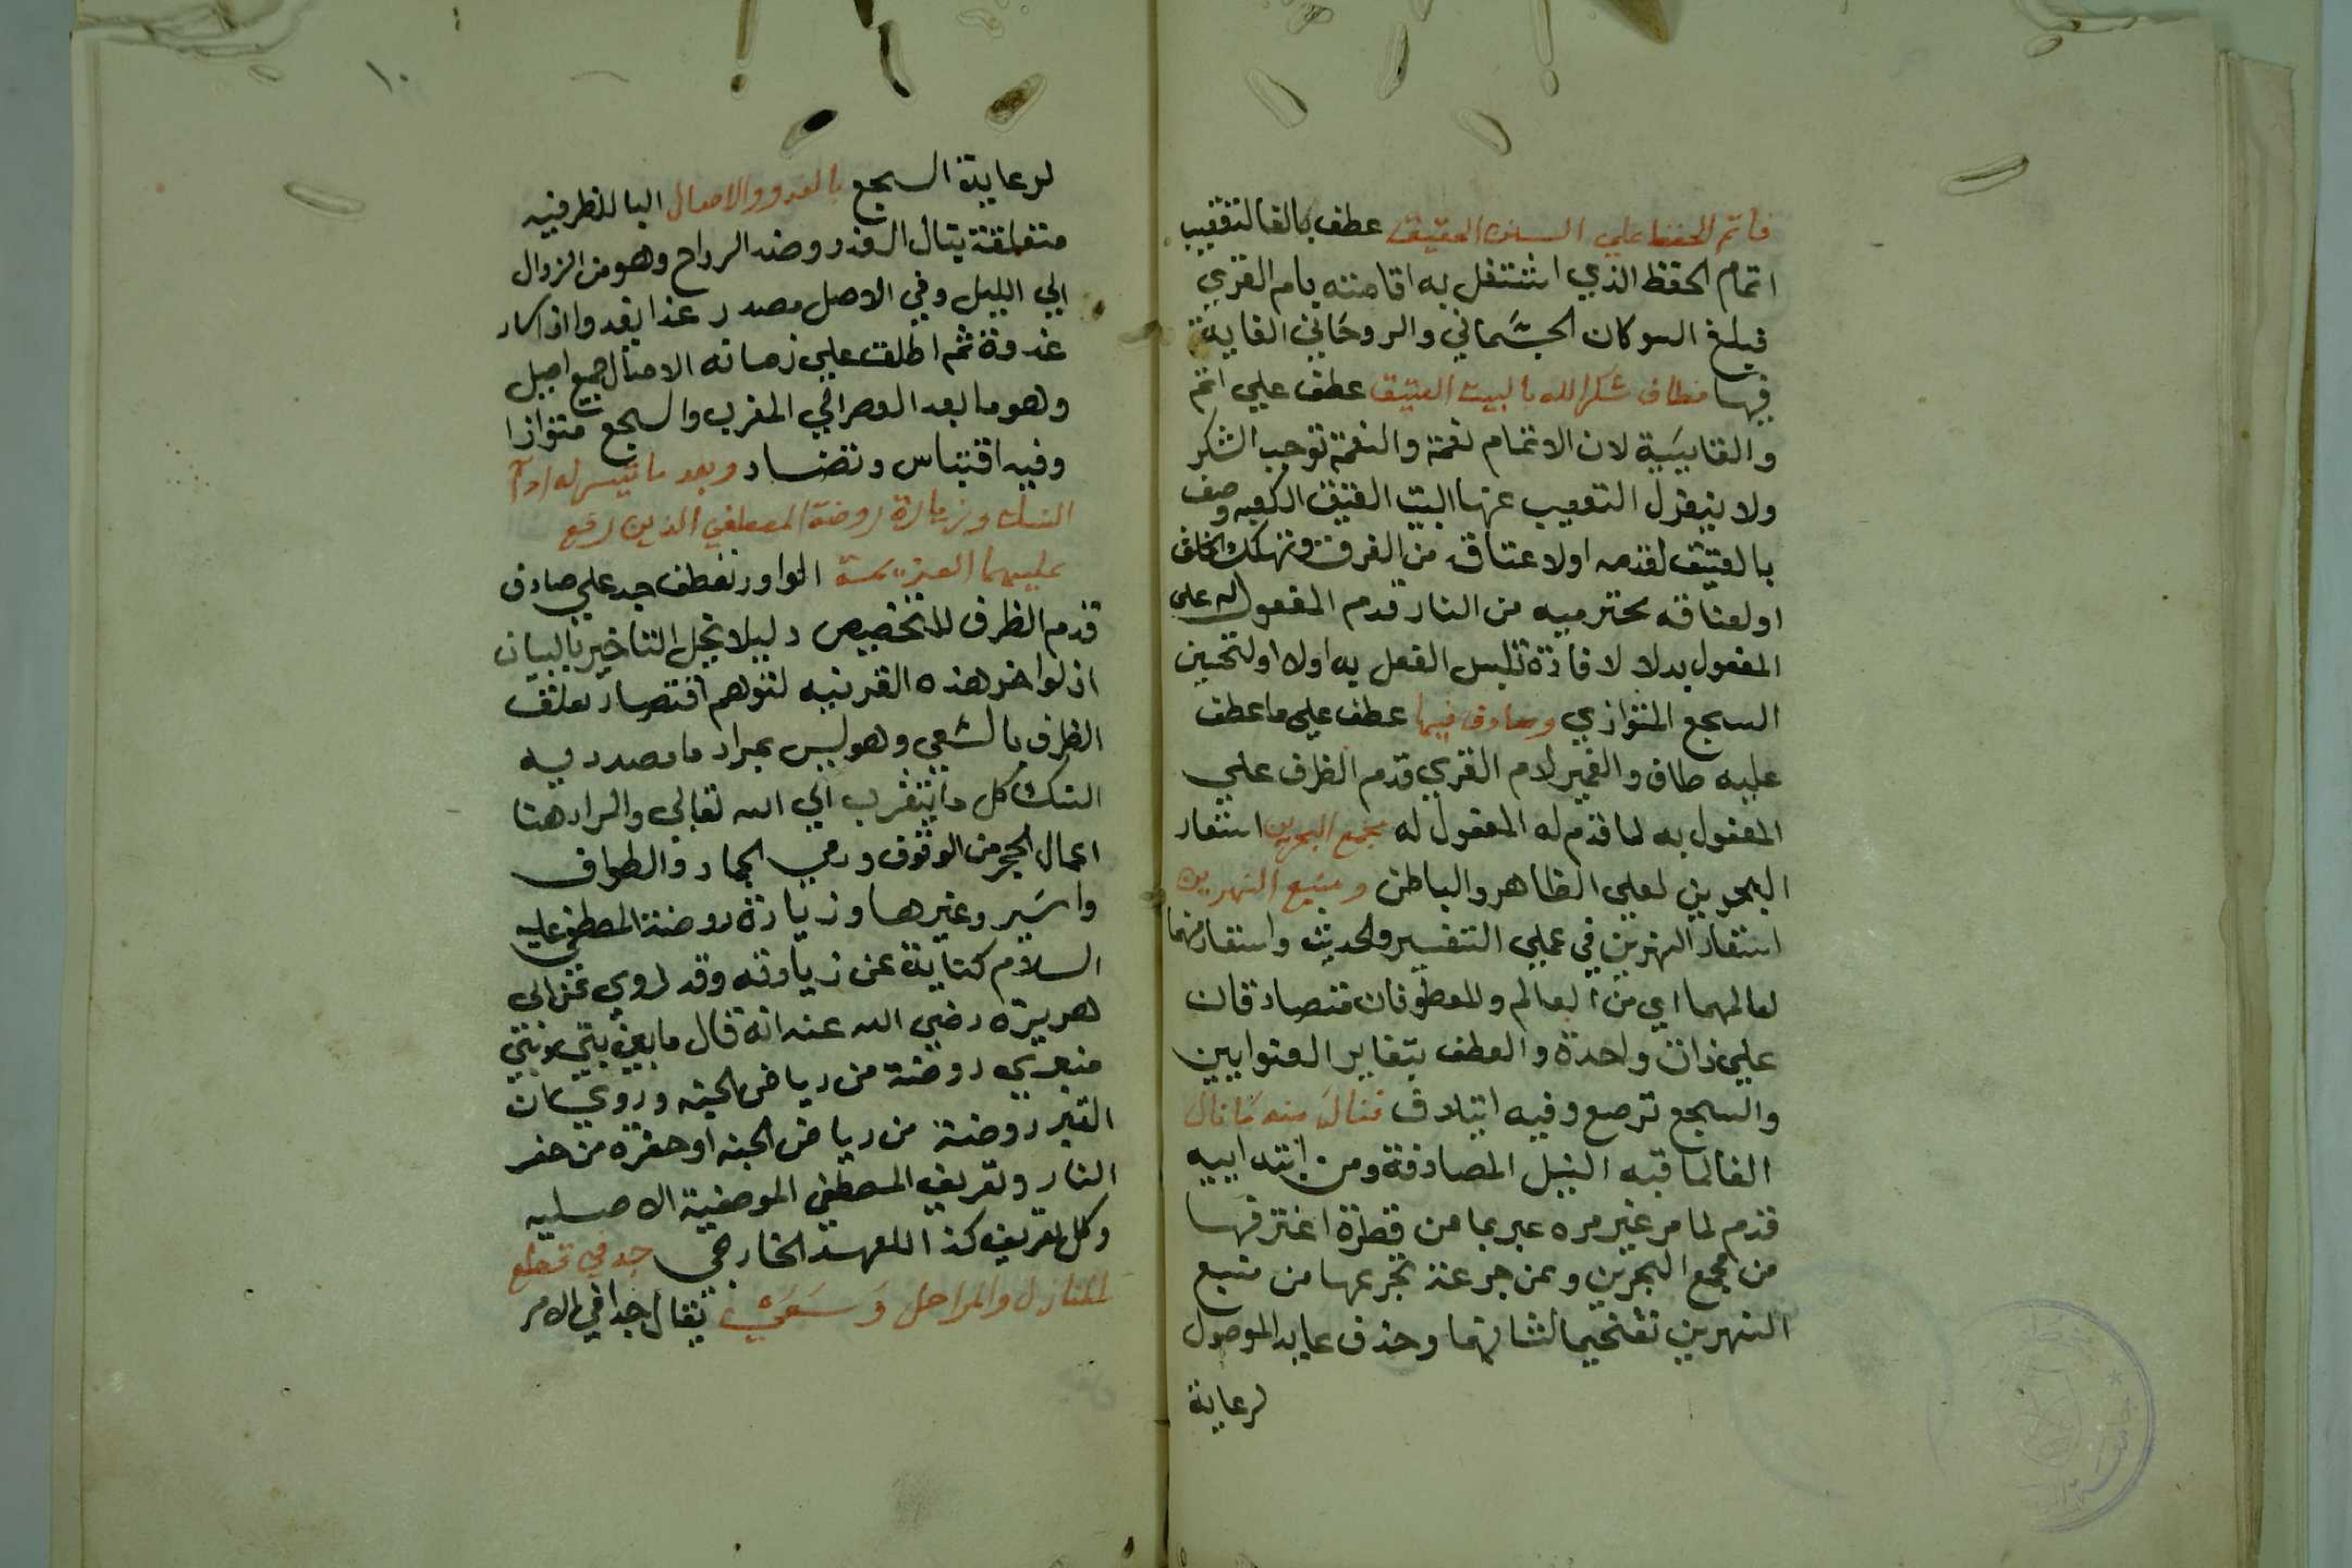 فأتم الحفظ علي السنن العقيق عطف بالفا لتعقيب
اتمام الحفظ الذي اشتغل به اقامته بام القري
فبلغ السوكان الجسماني والروحاني الغاية
فيها فطاف شكرا لله بالبيت العتيق عطف علي اتم
والفا سببية لان الاتمام نعمة والنعمة توجب الشكر
ولا ينعزل التعقيب عنها البيت العتيق الكعبه وصف
بالعتيق لقدمه اولاعتاقه من الغرق وتهلك الخلق
اولعتاقه محترميه من النار قدم المفعول له علي
المفعول بدلا لافادة تلبس الفعل به اولا اولتحسين
السجع المتوازي وصادف فيها عطف علي ما عطف
عليه طاف والضمير لام القري قدم الظرف علي
المفعول به لما قدم له المفعول له مجمع البحرين استعار
البحرين لعلمي الظاهر والباطن ومنبع النهرين
استعار النهرين في علمي التفسير والحديث واستعارهما
لعالمهما اي من العالم والمعطوفان متصادقان
علي ذات واحدة والعطف بتغاير العنوانين
والسجع ترصع وفيه ايتلاف فنال منه ما نال
الفا لما قبه النيل المصادفة ومن ابتداييه
قدم لما مر غير مره عبر بما من قطرة اغترفها
من مجمع البحرين وعن جرعة تجرعها من منبع
النهرين تفخيما لشانهما وحذف عايد الموصول
لرعاية
١٠
لرعاية السجع بالغدو والاصال البا للظرفيه
متعلقة بنال الغدو وضد الرواح وهو من الزوال
الي الليل وفي الاصل مصدر غدا يغدوا اذا سار
غدوة ثم اطلقت علي زمانه الاصال جمع اصيل
وهو ما بعد العصر الي المغرب والسجع متوازا
وفيه اقتباس وتضاد وبعد ما تيسر له ادآ
النسك وزيارة روضة المصطفي الذين رفع
عليهما العزيمة الواو رتعطف جد علي صادف
قدم الظرف للتخصيص وليلا يخل التاخير بالبيان
اذ لو اخر هذه القرينيه لتوهم اقتصار تعلق
الظرف بالسعي وهو ليس بمراد ما مصدريه
النسك كل ما يتقرب الي الله تعالي والمراد هنا
اعمال الحج من الوقوف ورمي الجمار والطواف
وا سير وغيرها وزيارة روضة المصطفي عليه
السلام كناية عن زيارته وقد روي عن ابي
هريره رضي الله عنه انه قال ما بين بيتي وبيني
منبري روضة من رياض الجنه وروي ان
القبر روضة من رياض الجنه او حفره من حفر
النار وتعريف المصطفي الموصفية الاصليه
وكل تعريف كذا للعهد الخارجي جد في قطع
المنازل والمراحل وسعي يقال جدا في الامر